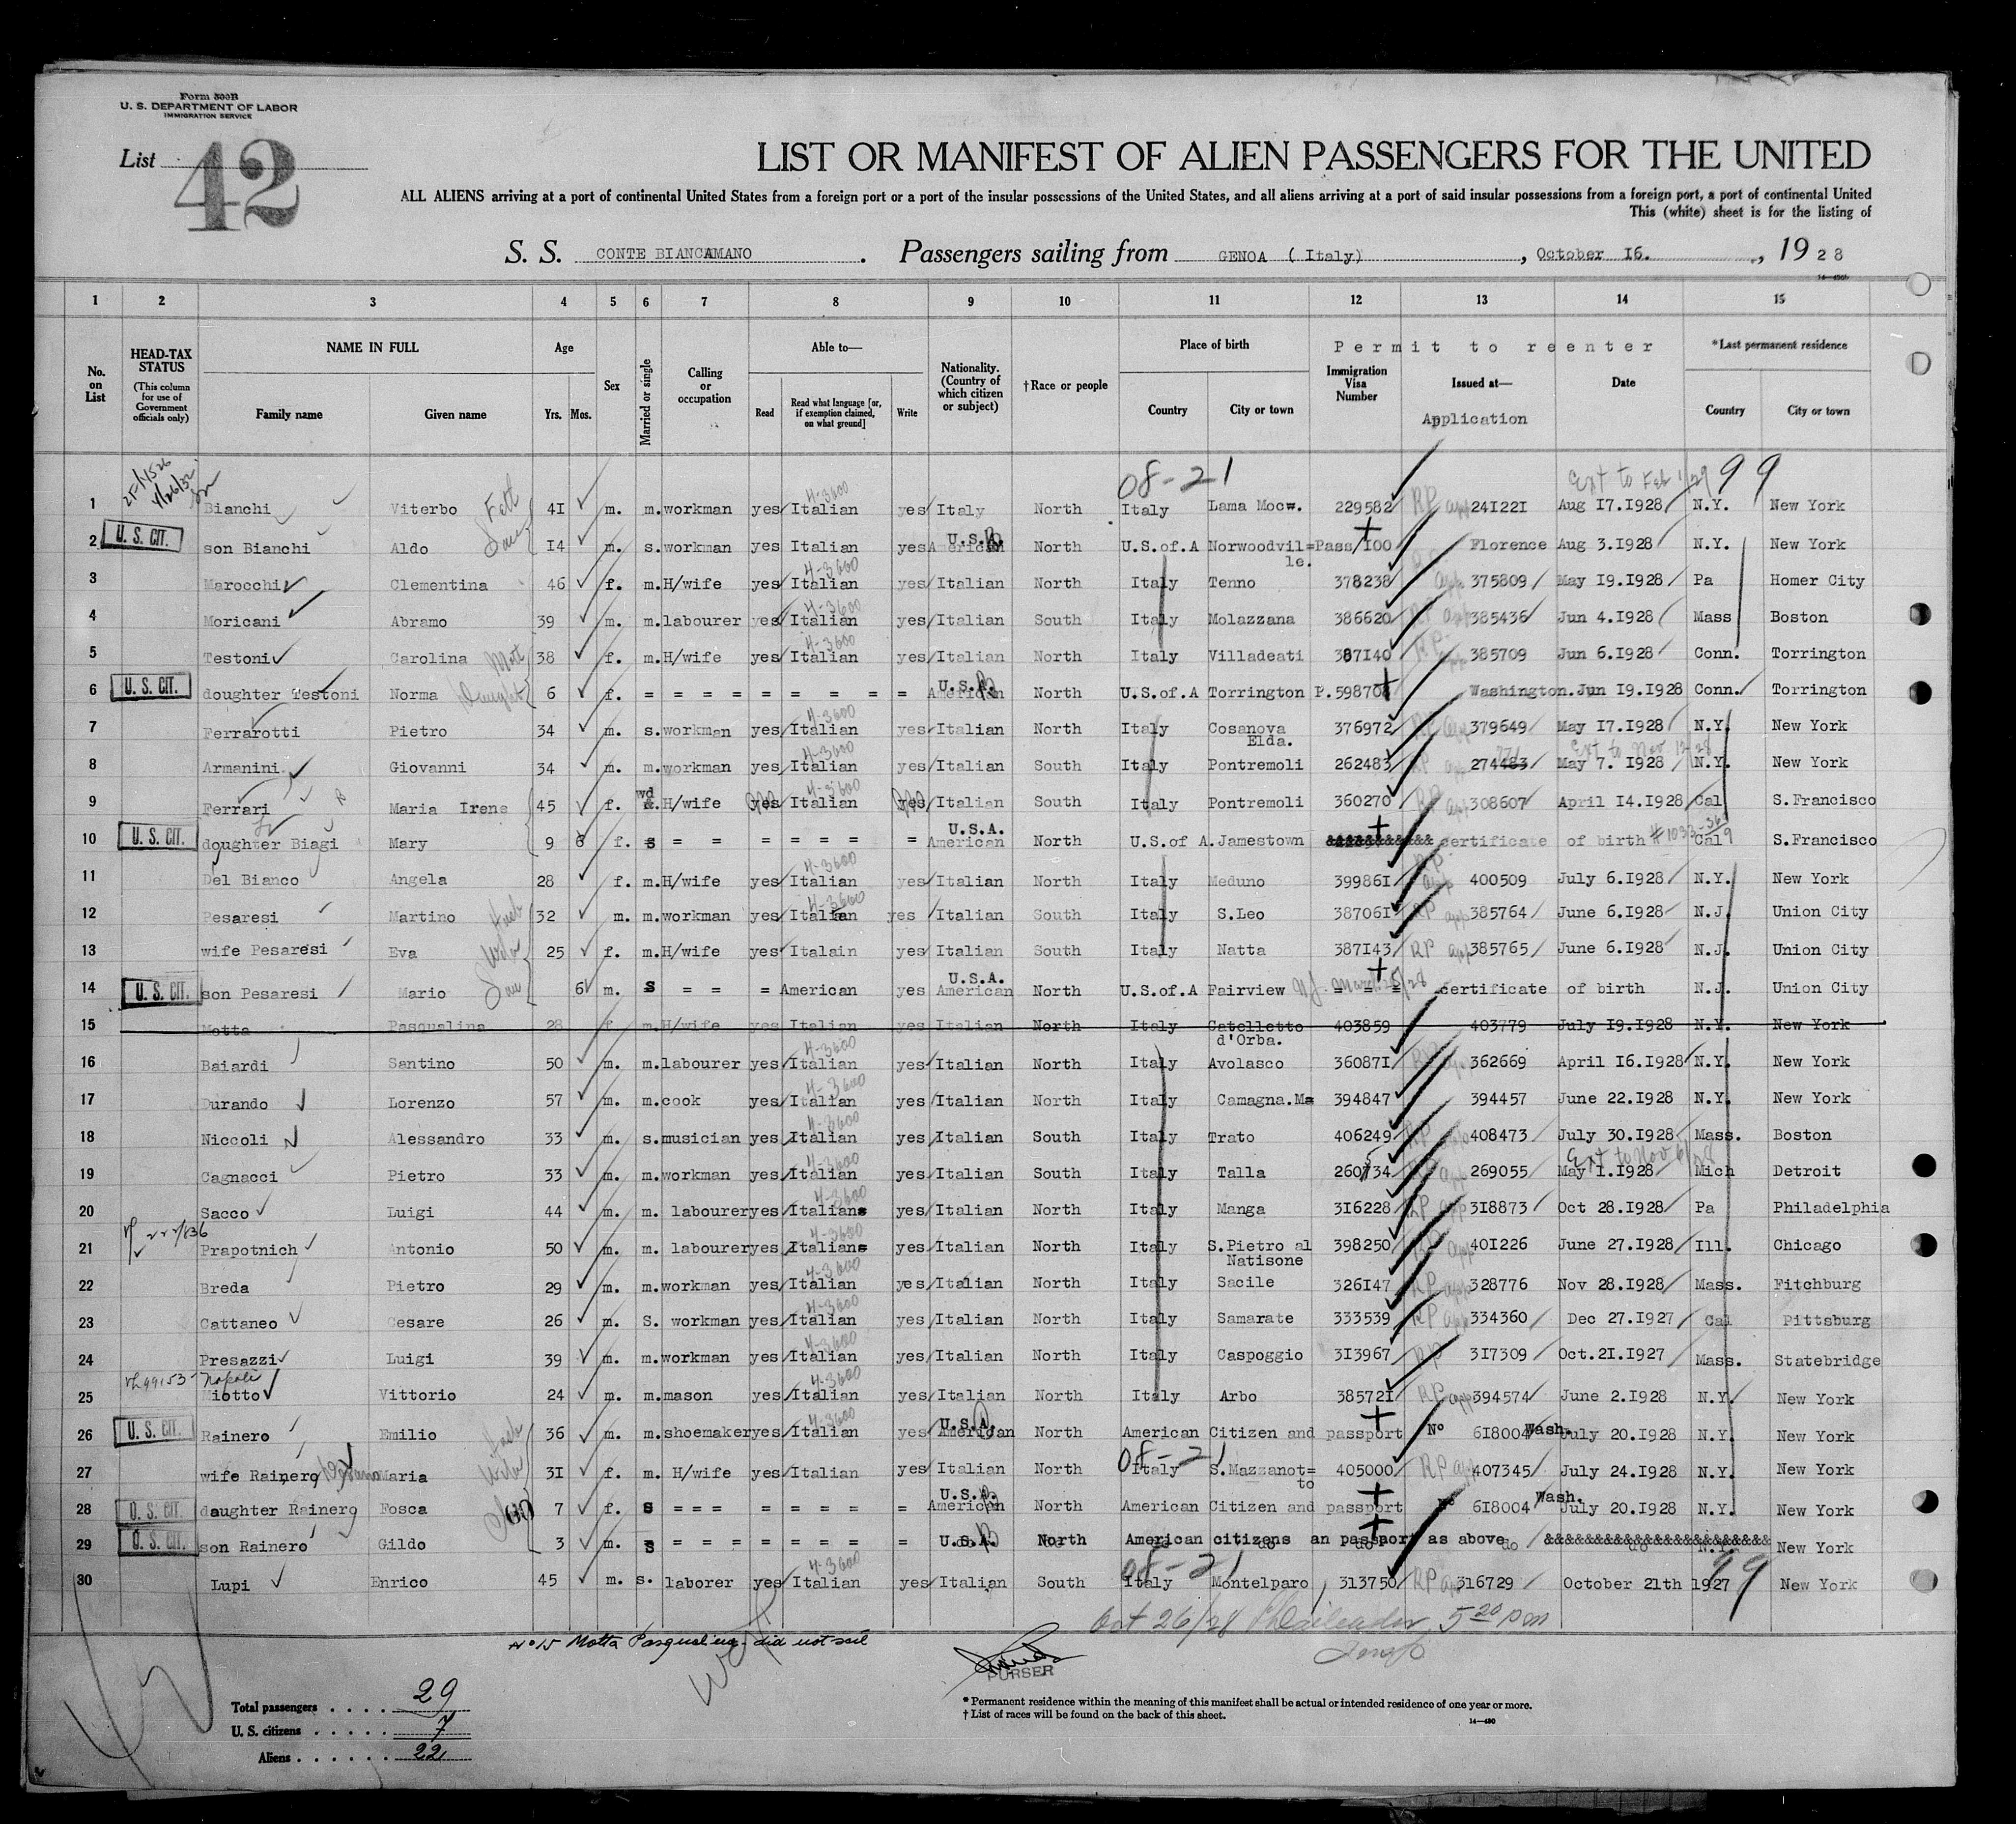 Form 500B
U. S. DEPARTMENT OF LABOR
IMMIGRATION SERVICE
List 42
LIST OR MANIFEST OF ALIEN PASSENGERS FOR THE UNITED
ALL ALIENS arriving at a port of continental United States from a foreign port or a port of the insular possessions of the United States, and all aliens arriving at a port of said insular possessions from a foreign port, a port of continental United
This (white) sheet is for the listing of
S. S. CONTE BIANCAMANO. Passengers sailing from GENOA ( Italy), October 16., 1928
1 2 3 4 5 6 7 8 9 10 11 12 13 14 15
No. on List
HEAD-TAX STATUS (This column for use of Government officials only)
NAME IN FULL Family name Given name
Age Yrs. Mos.
Sex
Married or single
Calling or occupation
Able to— Read Read what language [or, if exemption claimed, on what ground] Write
Nationality. (Country of which citizen or subject)
† Race or people
Place of birth Country City or town
Permit to reenter
Immigration Visa Number Issued at— Application Date
*Last permanent residence Country City or town
08-21 Ext to Feb 1/29 99
1 Bianchi Viterbo 41 m. m. workman yes Italian yes Italy North Italy Lama Mocw. 229582 RP app 241221 Aug 17.1928 N.Y. New York
2 U. S. CIT. son Bianchi Aldo 14 m. s. workman yes Italian yes American U.S.A. North U.S.of.A Norwoodvil=le. Pass/100 Florence Aug 3.1928 N.Y. New York
3 Marocchi Clementina 46 f. m. H/wife yes Italian 4-3600 yes Italian North Italy Tenno 378238 app 375809 May 19.1928 Pa Homer City
4 Moricani Abramo 39 m. m. labourer yes Italian 4-3600 yes Italian South Italy Molazzana 386620 RP app 385436 Jun 4.1928 Mass Boston
5 Testoni Carolina 38 f. m. H/wife yes Italian 4-3600 yes Italian North Italy Villadeati 387140 RP app 385709 Jun 6.1928 Conn. Torrington
6 U. S. CIT. doughter Testoni Norma Daught 6 f. = = = = = = = = = American U.S.A. North U.S.of.A Torrington P.59870 Washington. Jun 19.1928 Conn. Torrington
7 Ferrarotti Pietro 34 m. s. workman yes Italian 4-3600 yes Italian North Italy Cosanova Elda. 376972 RP app 379649 May 17.1928 N.Y. New York
8 Armanini Giovanni 34 m. m. workman yes Italian 4-3600 yes Italian South Italy Pontremoli 262483 RP app 274483 771 May 7. 1928 Ext to Nov 12/28 N.Y. New York
9 Ferrari Maria Irene 45 f. wd H/wife yes Italian 4-3600 yes Italian South Italy Pontremoli 360270 RP app 308607 April 14.1928 Cal S.Francisco
10 U. S. CIT. doughter Biagi Mary 9 6 f. s = = = = = = = American U.S.A. North U.S.of A. Jamestown certificate of birth Cal S.Francisco
11 Del Bianco Angela 28 f. m. H/wife yes Italian 4-3600 yes Italian North Italy Meduno 399861 RP app 400509 July 6.1928 N.Y. New York
12 Pesaresi Martino 32 m. m. workman yes Italian 4-3600 yes Italian South Italy S.Leo 387061 RP app 385764 June 6.1928 N.J. Union City
13 wife Pesaresi Eva Wife 25 f. m. H/wife yes Italain yes Italian South Italy Natta 387143 RP app 385765 June 6.1928 N.J. Union City
14 U. S. CIT. son Pesaresi Mario 6 m. s = = = American yes American U.S.A. North U.S.of.A Fairview NJ. = = = certificate of birth N.J. Union City
15 Motta Pasqualina 28 f m. H/wife yes Italian yes Italian North Italy Catelletto d'Orba. 403859 403779 July 19.1928 N.Y. New York
16 Baiardi Santino 50 m. m. labourer yes Italian 4-3600 yes Italian North Italy Avolasco 360871 RP app 362669 April 16.1928 N.Y. New York
17 Durando Lorenzo 57 m. m. cook yes Italian 4-3600 yes Italian North Italy Camagna.Ma 394847 394457 June 22.1928 N.Y. New York
18 Niccoli Alessandro 33 m. s. musician yes Italian 4-3600 yes Italian South Italy Trato 406249 RP app 408473 July 30.1928 Mass. Boston
19 Cagnacci Pietro 33 m. m. workman yes Italian 4-3600 yes Italian South Italy Talla 260734 RP app 269055 May 1.1928 Ext to Nov 6/28 Mich Detroit
20 Sacco Luigi 44 m. m. labourer yes Italian 4-3600 yes Italian North Italy Manga 316228 RP app 318873 Oct 28.1928 Pa Philadelphia
21 Prapotnich Antonio 50 m. m. labourer yes Italian 4-3600 yes Italian North Italy S.Pietro al Natisone 398250 RP app 401226 June 27.1928 Ill. Chicago
22 Breda Pietro 29 m. m. workman yes Italian 4-3600 yes Italian North Italy Sacile 326147 RP app 328776 Nov 28.1928 Mass. Fitchburg
23 Cattaneo Cesare 26 m. S. workman yes Italian 4-3600 yes Italian North Italy Samarate 333539 RP app 334360 Dec 27.1927 Cal Pittsburg
24 Presazzi Luigi 39 m. m. workman yes Italian 4-3600 yes Italian North Italy Caspoggio 313967 RP 317309 Oct.21.1927 Mass. Statebridge
25 Miotto Napoli Vittorio 24 m. m. mason yes Italian 4-3600 yes Italian North Italy Arbo 385721 RP app 394574 June 2.1928 N.Y. New York
26 U. S. CIT. Rainero Emilio 36 m. m. shoemaker yes Italian 4-3600 yes American U.S.A. North American Citizen and passport No 618004 Wash. July 20.1928 N.Y. New York
27 wife Rainero Maria Wife 31 f. m. H/wife yes Italian yes Italian North 08-21 Italy S.Mazzanot=to 405000 RP app 407345 July 24.1928 N.Y. New York
28 U. S. CIT. daughter Rainero Fosca 7 f. s = = = = = = = = American U.S.A. North American Citizen and passport No 618004 Wash. July 20.1928 N.Y. New York
29 U. S. CIT. son Rainero Gildo 3 m. s = = = = = = = = = U.S.A. North American citizens an passport as above do N.Y. New York
30 Lupi Enrico 45 m. s. laborer yes Italian 4-3600 yes Italian South 08-21 Italy Montelparo 313750 RP app 316729 October 21th 1927 99 New York
Oct 26/28 5 20 pm
No 15 Motta Pasqualina did not sail
PURSER
Total passengers . . . . 29
U. S. citizens . . . . . 7
Aliens . . . . . . 22
* Permanent residence within the meaning of this manifest shall be actual or intended residence of one year or more.
† List of races will be found on the back of this sheet.
14—430